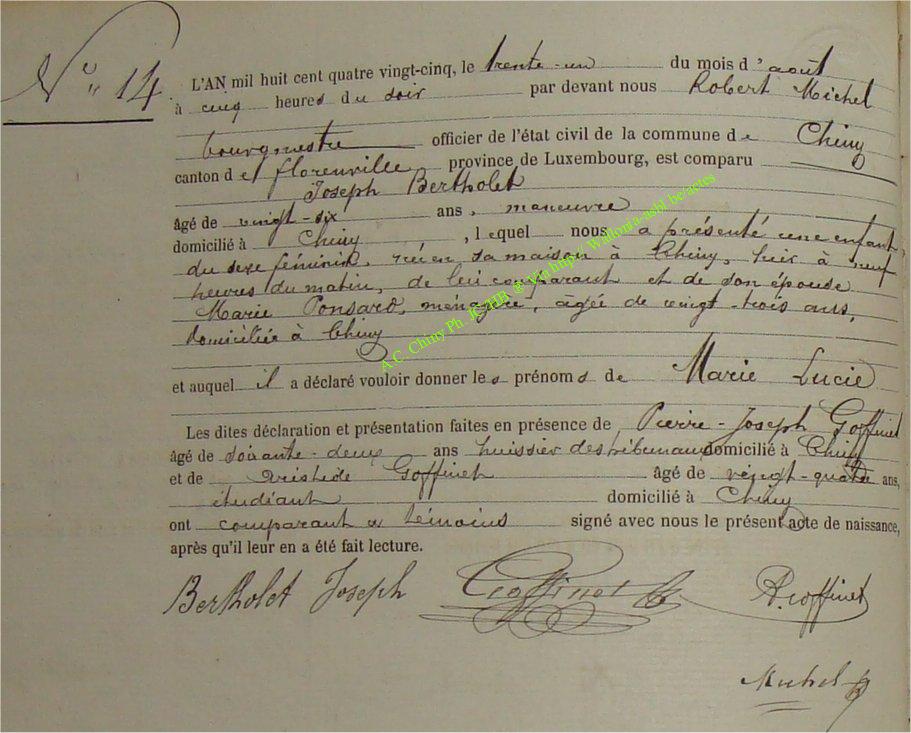 N° 14
L'AN mil huit cent quatre vingt-cinq, le trente-un du mois d'août
à cinq heures du soir par devant nous Robert Michel
bourgmestre officier de l'état civil de la commune de Chiny
canton de florenville province de Luxembourg, est comparu
Joseph Bertholet
âgé de vingt-six ans, manœuvre
domicilié à Chiny, lequel nous a présenté une enfant
du sexe féminin, née en sa maison à Chiny, hier à neuf
heures du matin, de lui comparant et de son épouse
Marie Ponsard, ménagère, âgée de vingt-trois ans,
domiciliée à Chiny
et auquel il a déclaré vouloir donner les prénoms de Marie Lucie
Les dites déclaration et présentation faites en présence de Pierre-Joseph Goffinet
âgé de soixante-deux ans huissier des tribunaux domicilié à Chiny
et de Aristide Goffinet âgé de vingt-quatre ans,
étudiant domicilié à Chiny
ont comparant & témoins signé avec nous le présent acte de naissance,
après qu'il leur en a été fait lecture.
Bertholet Joseph Goffinet A. Goffinet
Michel
A.C. Chiny Ph. JCHR @ Via http// Wallonia-asbl be/actes